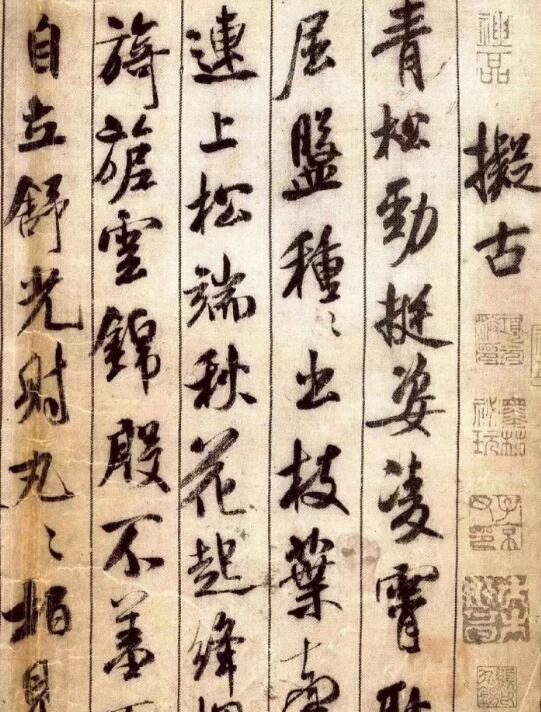 神品
擬古
青松勁挺姿凌霄
屈盤種〻出枝葉
連上松端秋花起絳
旖旎雲錦殷不羞
自立舒光射丸〻柏見